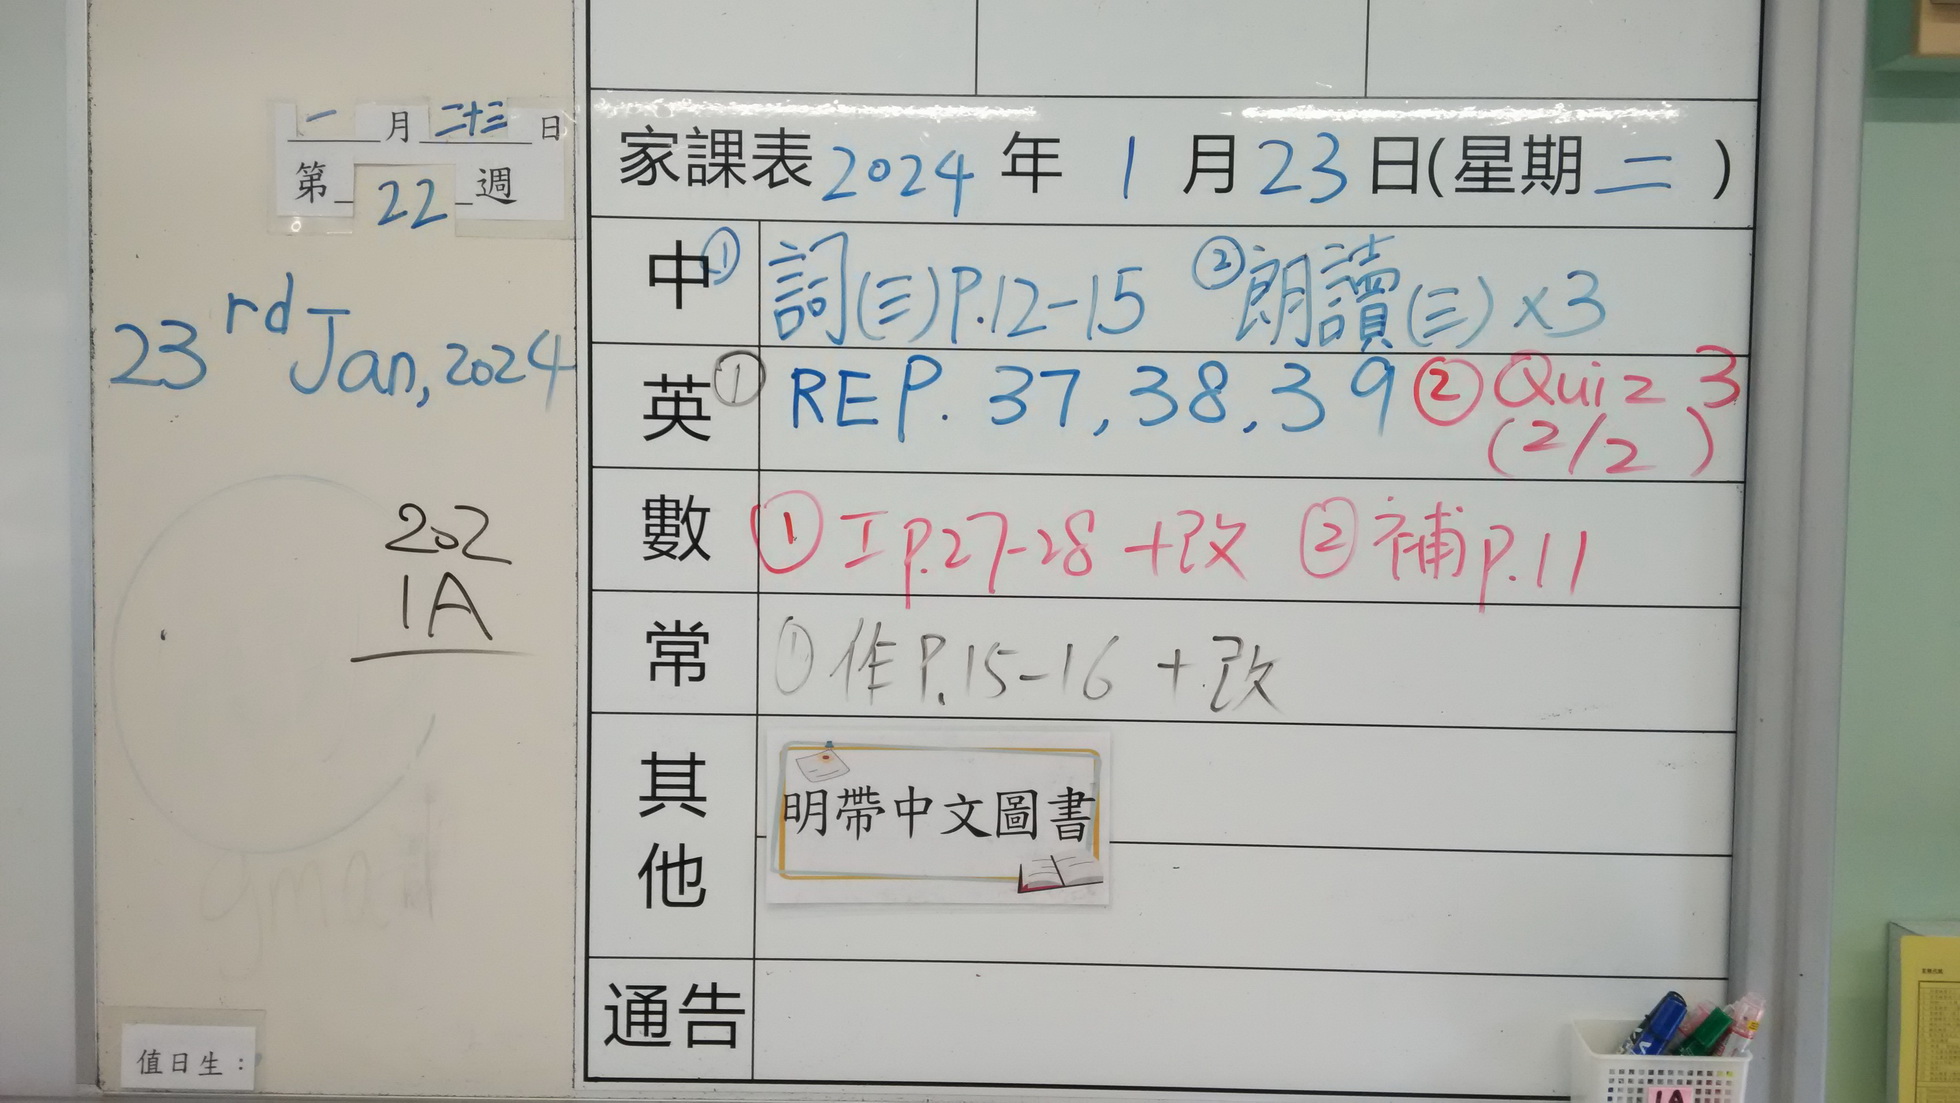 一月二十三日
第22週
23rd Jan, 2024
202
1A
gmail
值日生：
家課表2024年1月23日(星期二)
中 ① 詞(三)P.12-15 ②朗讀(三)×3
英 ① REP. 37,38,39 ② Quiz 3
(2/2)
數 ① 工P.27-28 +改 ② 補P.11
常 ① 作P.15-16 +改
其他
明帶中文圖書
通告
1A